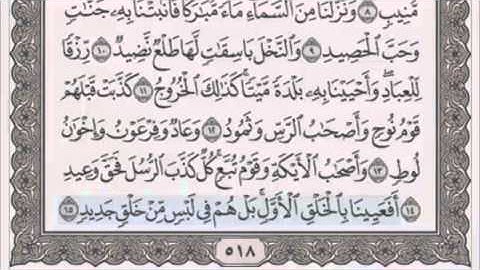 مُّنِيبٍ ۝٨ وَنَزَّلْنَا مِنَ السَّمَاءِ مَاءً مُّبَارَكًا فَأَنۢبَتْنَا بِهِۦ جَنَّاتٍ
وَحَبَّ الْحَصِيدِ ۝٩ وَالنَّخْلَ بَاسِقَاتٍ لَّهَا طَلْعٌ نَّضِيدٌ ۝١٠ رِّزْقًا
لِّلْعِبَادِ ۖ وَأَحْيَيْنَا بِهِۦ بَلْدَةً مَّيْتًا ۚ كَذَٰلِكَ الْخُرُوجُ ۝١١ كَذَّبَتْ قَبْلَهُمْ
قَوْمُ نُوحٍ وَأَصْحَابُ الرَّسِّ وَثَمُودُ ۝١٢ وَعَادٌ وَفِرْعَوْنُ وَإِخْوَانُ
لُوطٍ ۝١٣ وَأَصْحَابُ الْأَيْكَةِ وَقَوْمُ تُبَّعٍ ۚ كُلٌّ كَذَّبَ الرُّسُلَ فَحَقَّ وَعِيدِ
۝١٤ أَفَعَيِينَا بِالْخَلْقِ الْأَوَّلِ ۚ بَلْ هُمْ فِي لَبْسٍ مِّنْ خَلْقٍ جَدِيدٍ ۝١٥
٥١٨